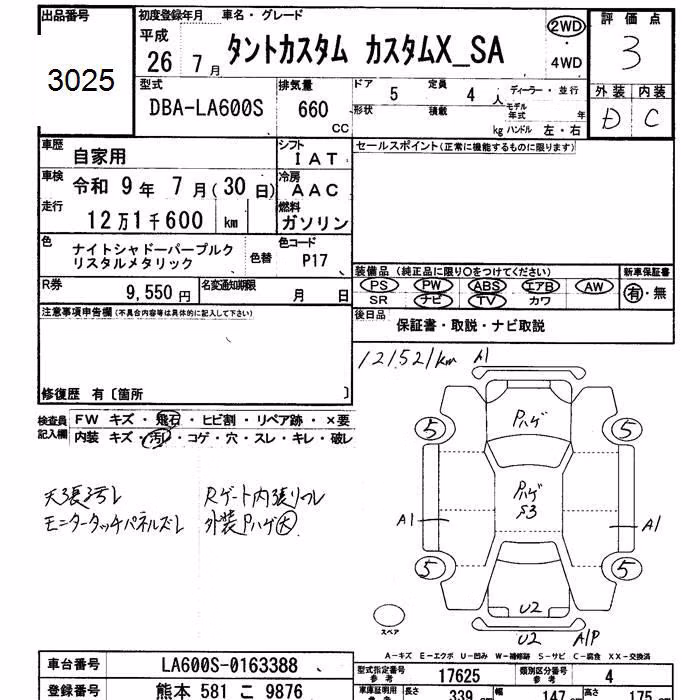 出品番号
3025
初度登録年月 車名・グレード
平成 26 7月 タントカスタム カスタムX_SA
2WD
4WD
評価点
3
外装 内装
D C
型式 DBA-LA600S
排気量 660 CC
ドア 5 定員 4 人 ディーラー・並行
形状 積載 kg モデル年式 年
ハンドル 左・右
車歴 自家用
シフト IAT
車検 令和 9年 7月(30日)
冷房 AAC
走行 12万1千600 km
燃料 ガソリン
セールスポイント(正常に機能するものに限ります)
色 ナイトシャドーパープルクリスタルメタリック
色替
色コード P17
R券 9,550円
名変通知期限 月 日
装備品(純正品に限り○をつけてください)
PS PW ABS エアB AW
SR ナビ TV カワ
新車保証書
有・無
注意事項申告欄(不具合内容等は具体的に記入して下さい)
後日品 保証書・取説・ナビ取説
修復歴 有〔箇所 〕
検査員記入欄
FW キズ・飛石・ヒビ割・リペア跡・×要
内装 キズ・汚レ・コゲ・穴・スレ・キレ・破レ
121521km
A1
Pハゲ
5 5
Pハゲ
S3
A1 A1
5 5
U2
U2 A1P
スペア
天張汚レ Rゲート内張リフレ
モニタータッチパネルズレ 外装Pハゲ大
A-キズ E-エクボ U-凹み W-補修跡 S-サビ C-腐食 XX-交換済
車台番号 LA600S-0163388
型式指定番号 参考 17625
類別区分番号 参考 4
登録番号 熊本 581 こ 9876
車庫証明用 長さ 339 cm 幅 147 cm 高さ 175 cm